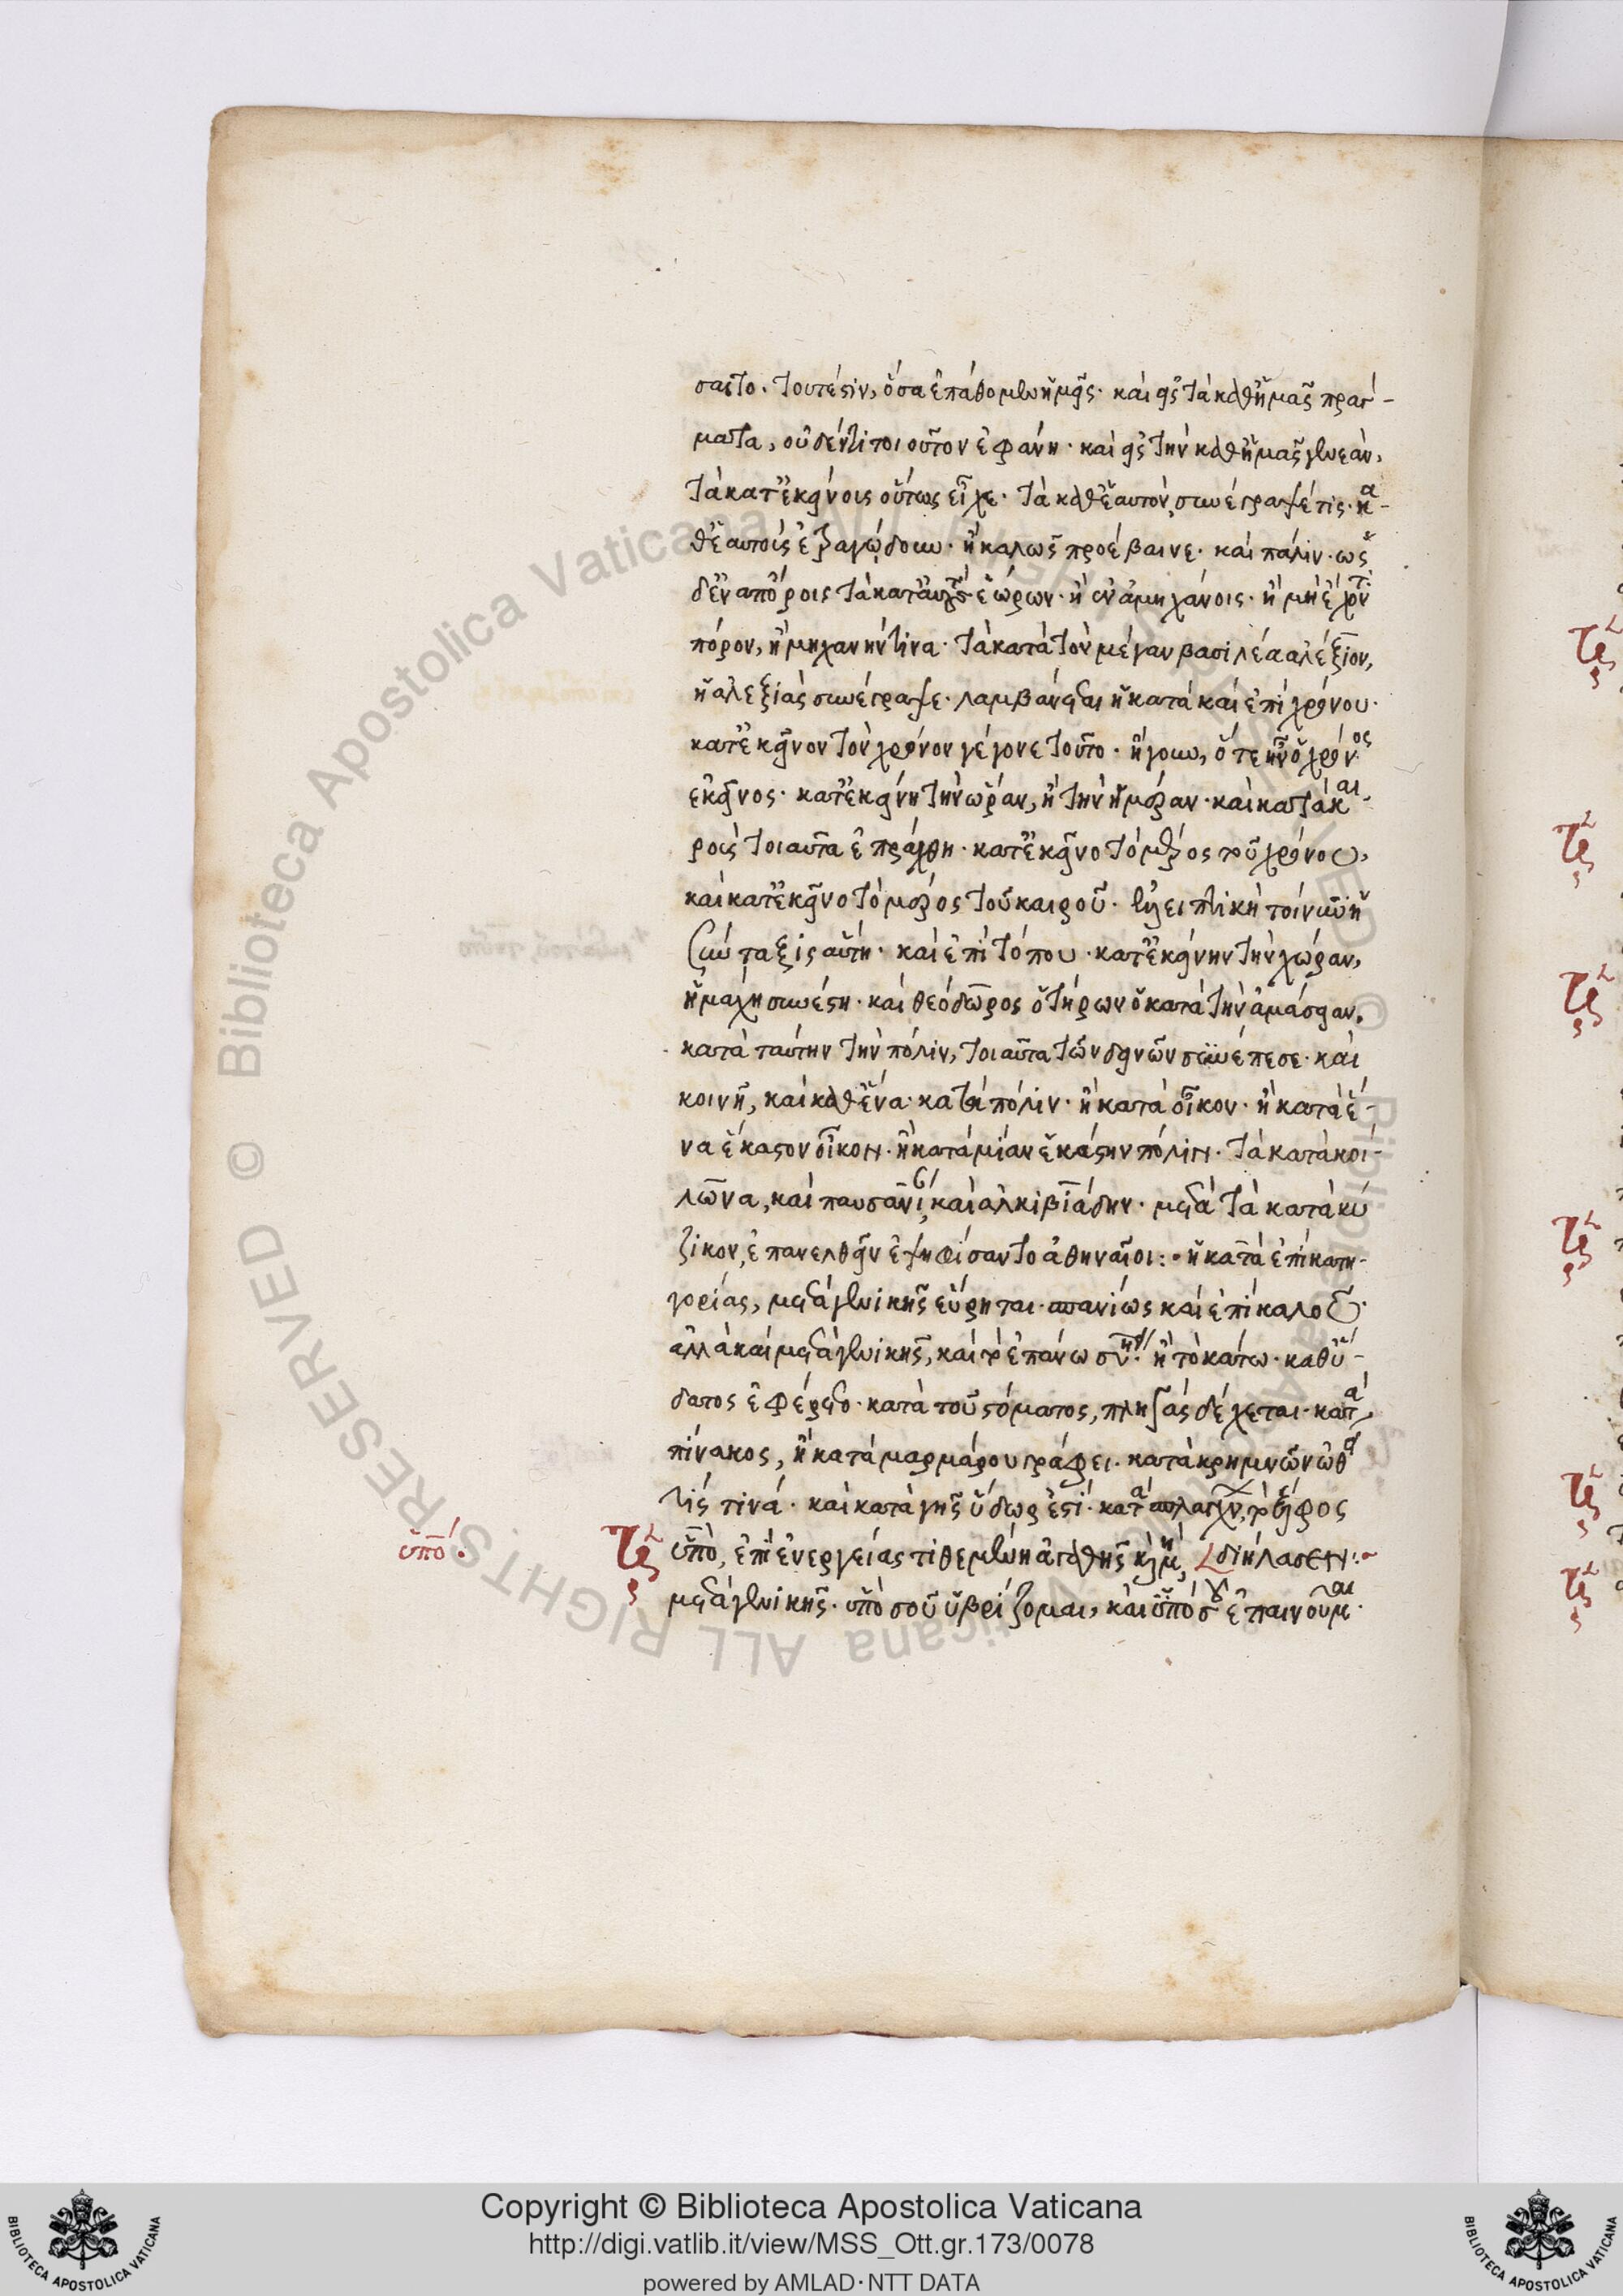 σατο. τουτέστιν, ὅσα ἐπάθομεν ἡμεῖς. καὶ εἰς τὰ καθ' ἡμᾶς πράγ-
ματα, οὐδέν τι τοιοῦτον ἐφάνη. καὶ εἰς τὴν καθ' ἡμᾶς γενεάν,
τὰ κατ' ἐκείνοις οὕτως εἶχε. τὰ καθ' ἑαυτὸν συνέγραψέ τις. κα-
θ' ἑαυτοὺς ἐτραγῴδουν. ἢ καλῶς προέβαινε. καὶ πάλιν. ὡς
δ' ἐν ἀπόροις τὰ κατ' αὐτοὺς ἑώρων. ἢ ἐν ἀμηχάνοις. ἢ μὴ ἔχοντα
πόρον, ἢ μηχανήν τινα. τὰ κατὰ τὸν μέγαν βασιλέα ἀλέξιον,
ἡ ἀλεξιὰς συνέγραψε. λαμβάνεται ἡ κατὰ καὶ ἐπὶ χρόνου.
κατ' ἐκεῖνον τὸν χρόνον γέγονε τοῦτο. ἤγουν, ὅτε ἦν ὁ χρόνος
ἐκεῖνος. κατ' ἐκείνη τὴν ὥραν, ἢ τὴν ἡμέραν. καὶ κατὰ και-
ροὺς τοιαῦτα ἐπράχθη. κατ' ἐκεῖνο τὸ μέρος τοῦ χρόνου,
καὶ κατ' ἐκεῖνο τὸ μέρος τοῦ καιροῦ. ἐλλειπτικὴ τοίνυν ἡ
σύνταξις αὕτη. καὶ ἐπὶ τόπου. κατ' ἐκείνην τὴν χώραν,
ἡ μάχη συνέστη. καὶ θεόδωρος ὁ τήρων ὁ κατὰ τὴν ἀμάσειαν.
κατὰ ταύτην τὴν πόλιν, τοιαῦτα τῶν δεινῶν συνέπεσε. καὶ
κοινῇ, καὶ καθ' ἕνα. κατὰ πόλιν. ἢ κατὰ οἶκον. ἢ κατὰ ἕ-
να ἕκαστον οἶκον. ἢ κατὰ μίαν ἑκάστην πόλιν. τὰ κατὰ κοι-
λῶνα, καὶ παυσανίαν, καὶ ἀλκιβιάδην. μετὰ τὰ κατὰ κύ
ζικον, ἐπανελθεῖν ἐψηφίσαντο ἀθηναῖοι: ἡ κατὰ ἐπὶ κατη-
γορίας, μετὰ γενικῆς εὕρηται. σπανίως καὶ ἐπὶ καλοῦ.
ἀλλὰ καὶ μετὰ γενικῆς, καὶ τὸ ἐπάνω ἢ τὸ κάτω. καθ' ὕ-
δατος ἐφέρετο. κατὰ τοῦ στόματος, πληγὰς δέχεται. κατὰ
πίνακος, ἢ κατὰ μαρμάρου γράφει. κατὰ κρημνῶν ὠθεῖ
τίς τινά. καὶ κατὰ γῆς ὕδωρ ἐστί. κατὰ σπλάγχνων τὸ ξίφος
ὑπό. ὑπὸ, ἐπὶ ἐνεργείας τιθεμένη ἀγαθῆς καὶ μή, διήλασεν:
μετὰ γενικῆς. ὑπὸ σοῦ ὑβρίζομαι, καὶ ὑπὸ σοῦ ἐπαινοῦμαι.
Copyright © Biblioteca Apostolica Vaticana
http://digi.vatlib.it/view/MSS_Ott.gr.173/0078
powered by AMLAD·NTT DATA
BIBLIOTECA APOSTOLICA VATICANA
BIBLIOTECA APOSTOLICA VATICANA
© Biblioteca Apostolica Vaticana ALL RIGHTS RESERVED